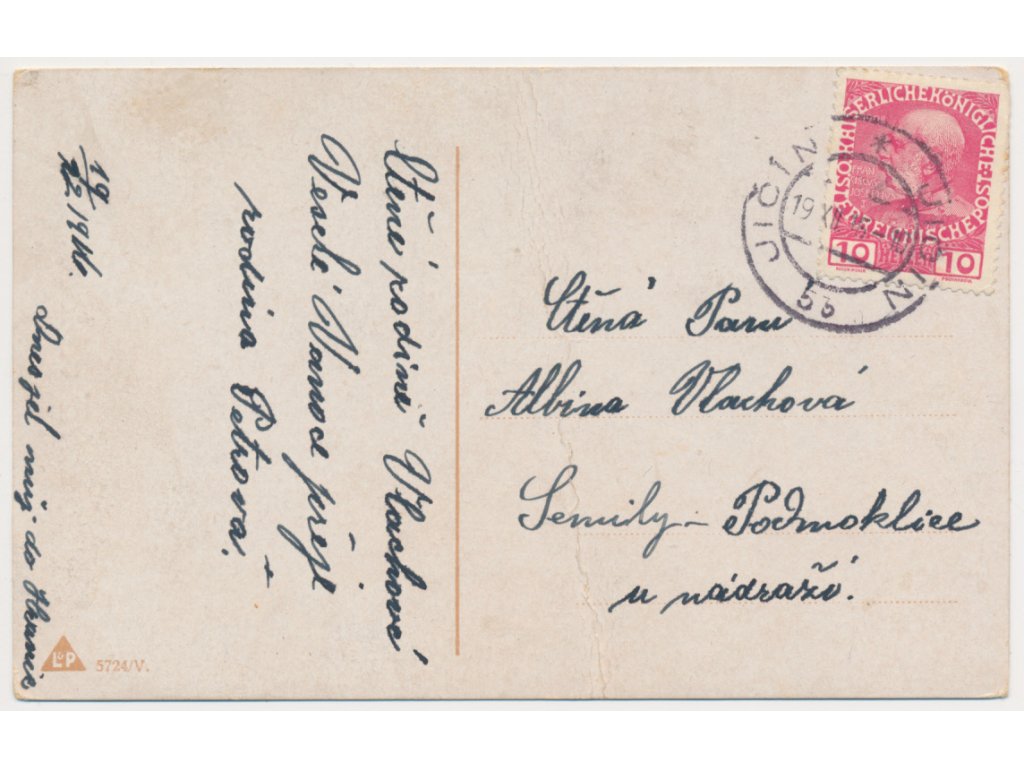 19/12 191
Ctěné rodině Vlachové
Veselé Vánoce přeje
rodina Petrova.
Dnes jel můj do
Ctěná Paní
Albina Vlachová
Semily – Podmoklice
u nádraží.
KAISERLICHE KÖNIGLICHE
ÖSTERREICHISCHE POST
10 HELLER 10
JIČÍN * JIČÍN
19 XII
5b
L&P
5724/V.